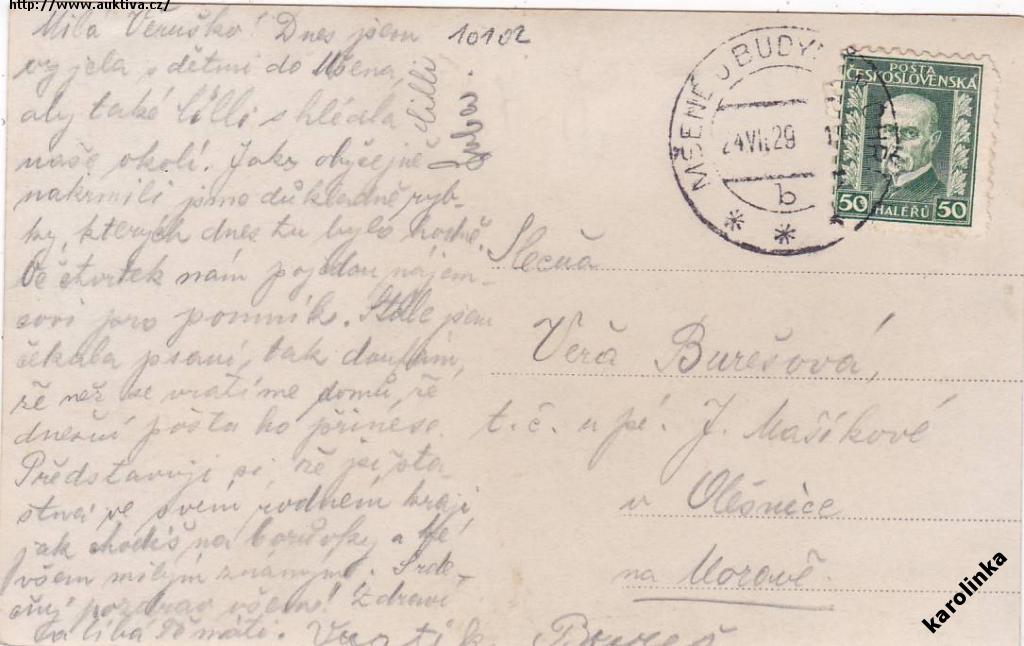 http://www.auktiva.cz/
Milá Veruško! Dnes jsem
vyjela s dětmi do Mšena,
aby také Lilli shlédla
naše okolí. Jako obyčejně
nakrmili jsme důkladně ryb-
ky, kterých dnes tu bylo hodně.
Ve čtvrtek nám pojedou nájem-
pro pomník. Stále jsem
čekala psaní, tak doufám,
že než se vrátíme domů, že
dnešní pošta ho přinese.
Představuji si, že jsi šťa-
stná ve svém rodném kraji
jak chodíš na borůvky, a
všem milým známým. Srde-
čný pozdrav všem! Zdraví
Tě máti. Vratík Bureš
Lilli
10102
MŠENÉ U BUDYNĚ
24.VII.29
b
POŠTA
ČESKOSLOVENSKÁ
50 HALÉŘŮ 50
Slečna
Věra Burešová,
t. č. u pí. J. Mašíkové
v Olešnice
na Moravě.
karolinka